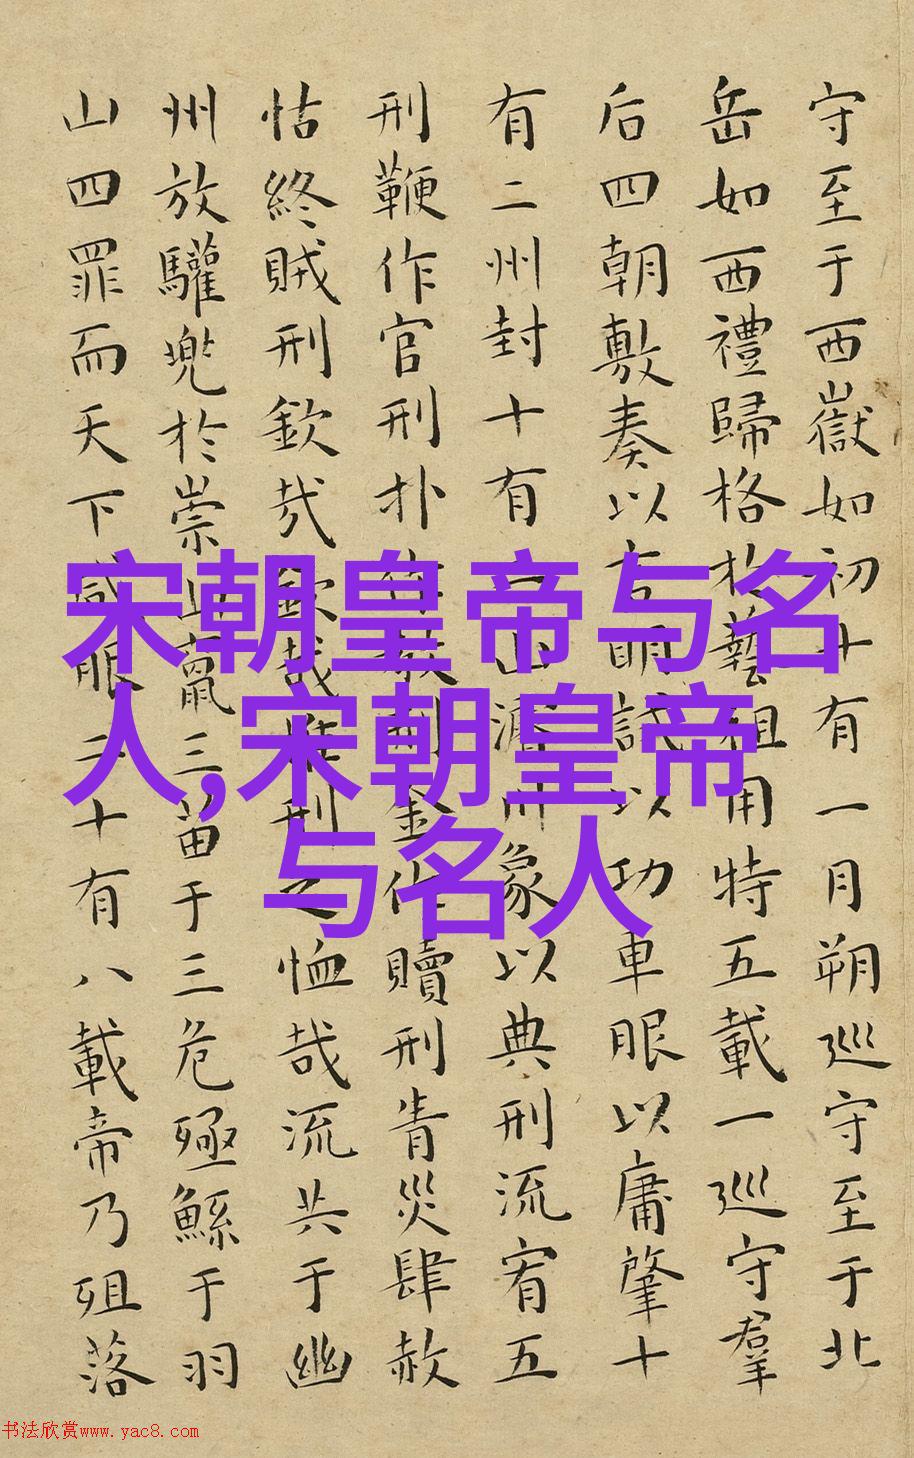 守至于西嶽如初十有一月朔巡守至于北
岳如西禮歸格於藝祖用特五載一巡守羣
后四朝敷奏以言明試以功車服以庸肇十
有二州封十有二山濬川象以典刑流宥五
刑鞭作官刑扑作教刑金作贖刑眚災肆赦
怙終賊刑欽哉欽哉惟刑之恤哉流共于幽
州放驩兜於崇山竄三苗于三危殛鯀于羽
山四罪而天下咸服二十有八載帝乃殂落
宋朝皇帝与名
人,宋朝皇帝
与名人
书法欣赏www.yac8.com